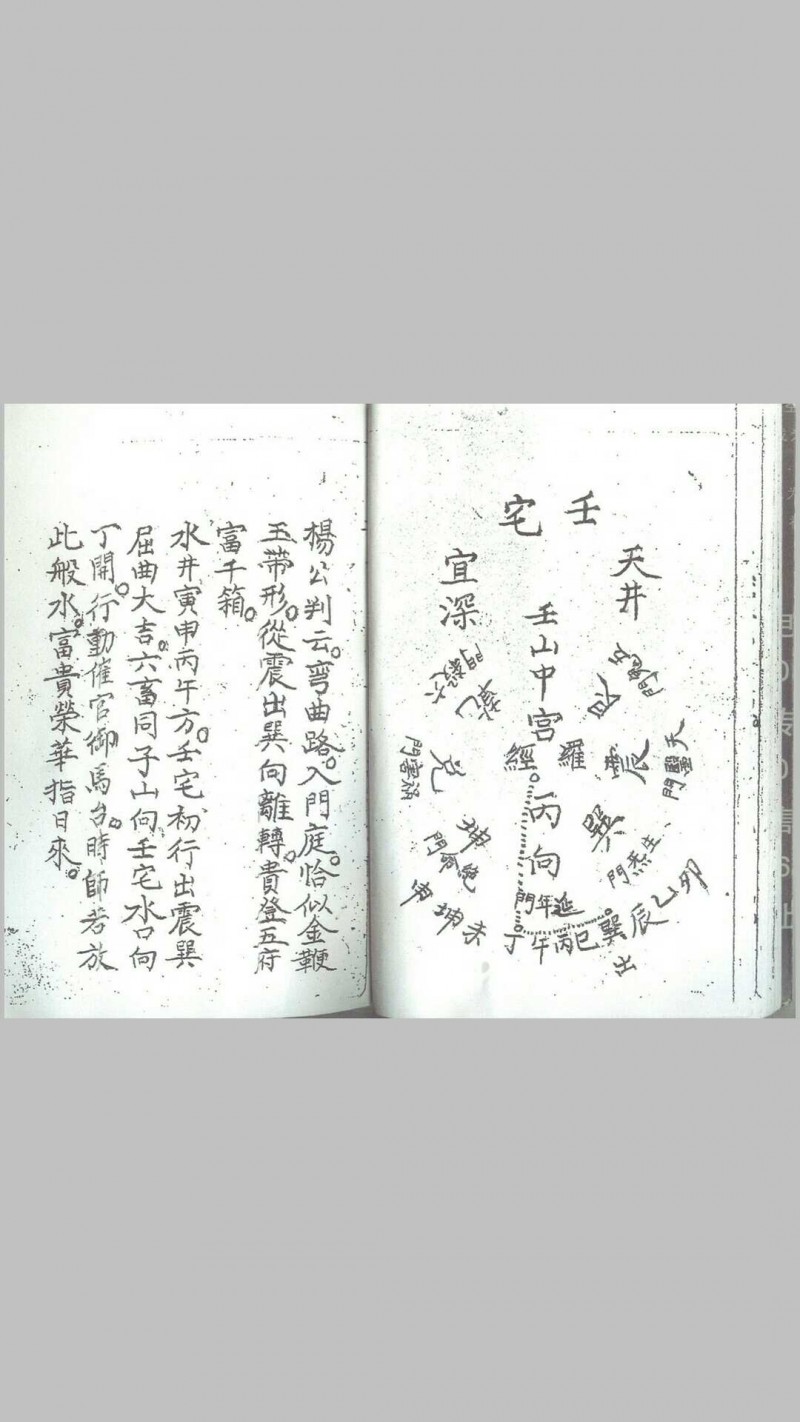 壬宅
天井
宜深
壬山中宮。丙向
羅經
艮
震
巽
坤
兌
乾
天醫門
生炁門
延年門
絕命門
禍害門
卯乙辰巽巳丙午丁
未坤申
出
楊公判云。彎曲路。入門庭。恰似金鞭
玉帶形。從震出巽向離轉。貴登五府
富千箱。
水井寅申丙午方。壬宅初行出震巽
屈曲大吉。六畜同子山向壬宅水口向
丁開。行動催官御馬台。時師若放
此般水。富貴榮華指日來。